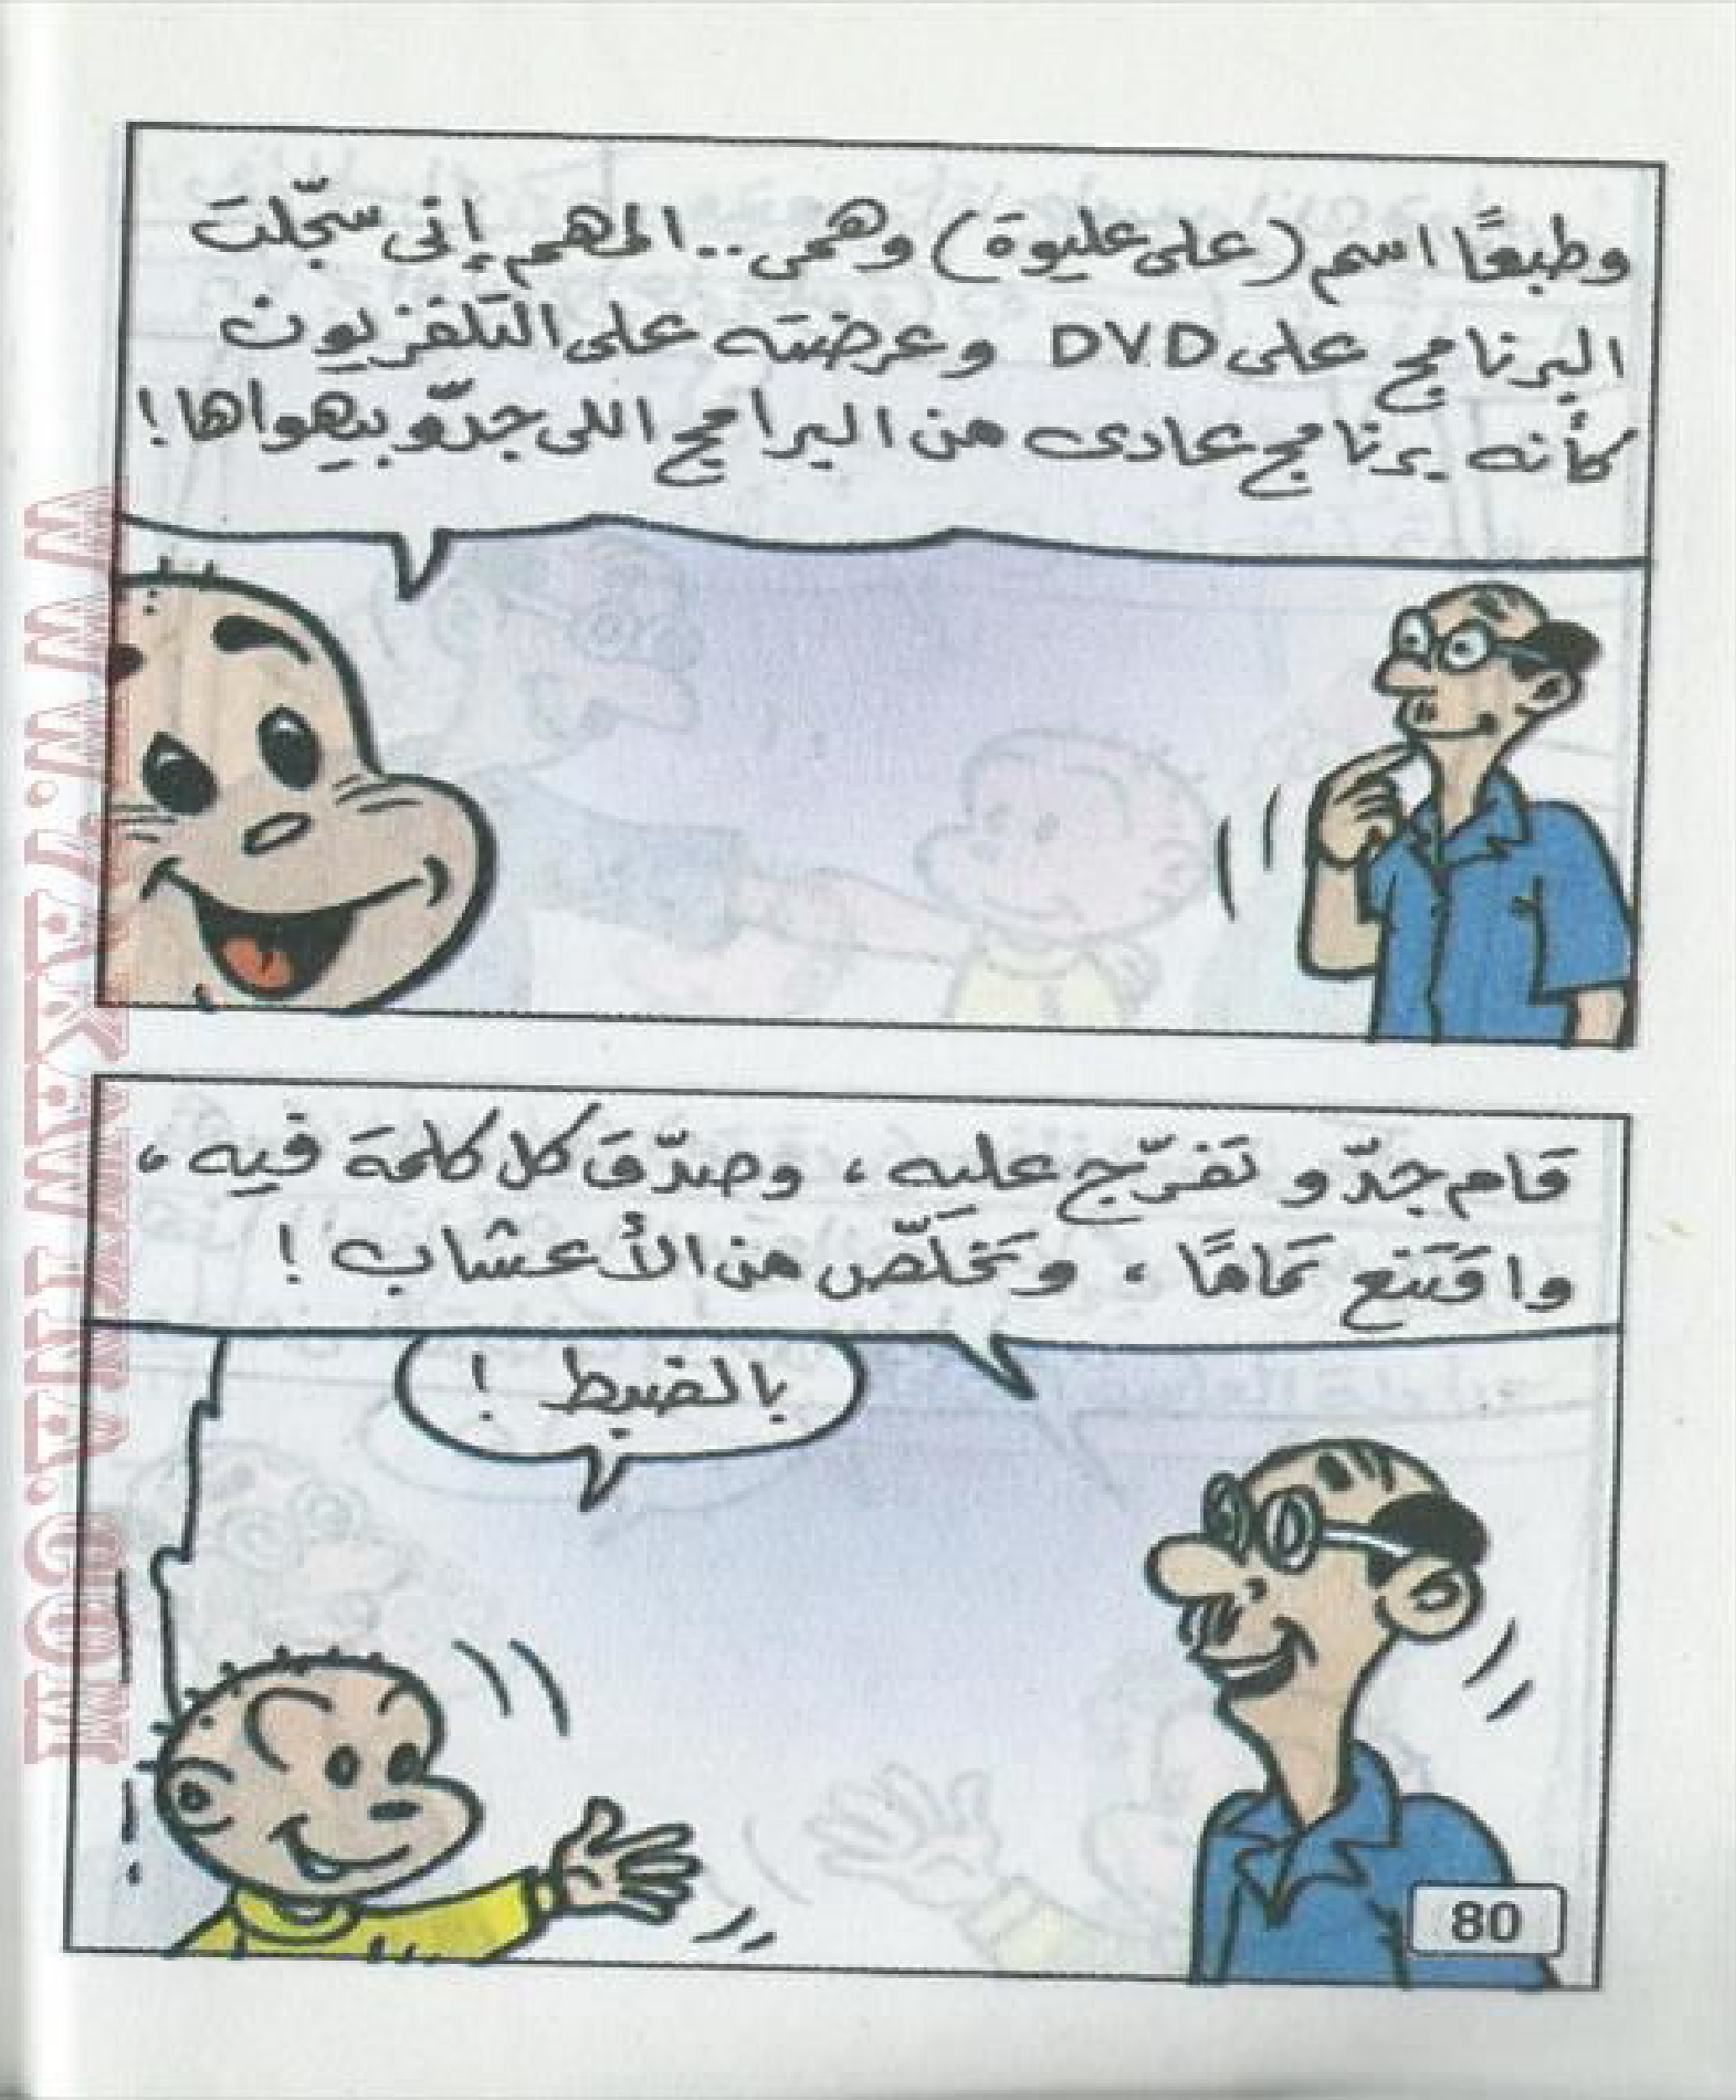 وطبعًا اسم (على عليوة) وهمى.. المهم إنى سجّلت
البرنامج على DVD وعرضته على التلفزيون
كأنه برنامج عادى من البرامج اللى جدّو بيهواها!
قام جدّو تفرّج عليه، وصدّق كل كلمة فيه،
واقتنع تمامًا، وتخلّص من الأعشاب!
بالضبط!
80